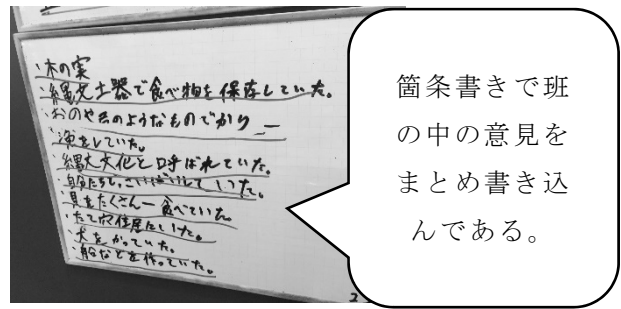 ・木の実
・縄文土器で食べ物を保存していた。
・おのや弓のようなものでかり
漁をしていた。
・縄文文化と呼ばれていた。
・自分たちでさいばいしていた。
・貝をたくさん 食べていた。
・たて穴住居にいた。
・犬をかっていた。
・船などを作っていた。
2
箇条書きで班
の中の意見を
まとめ書き込
んである。